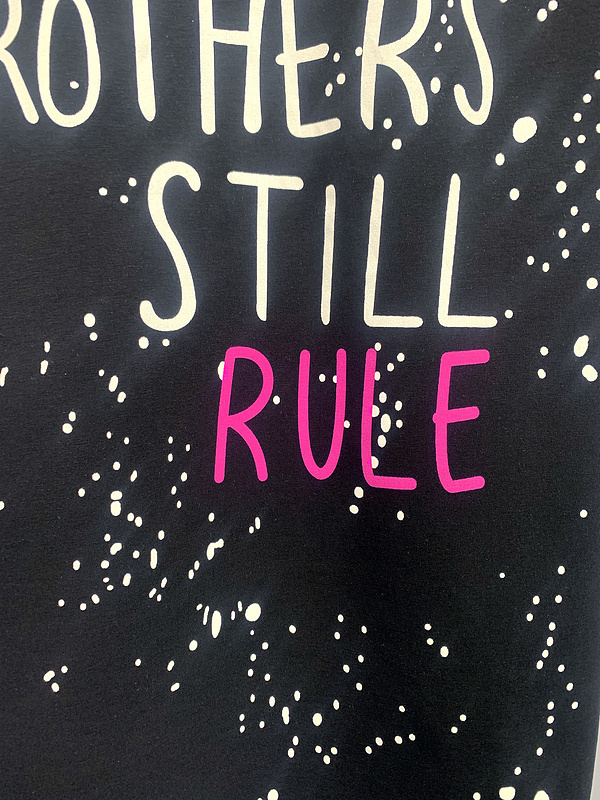 ROTHERS
STILL
RULE